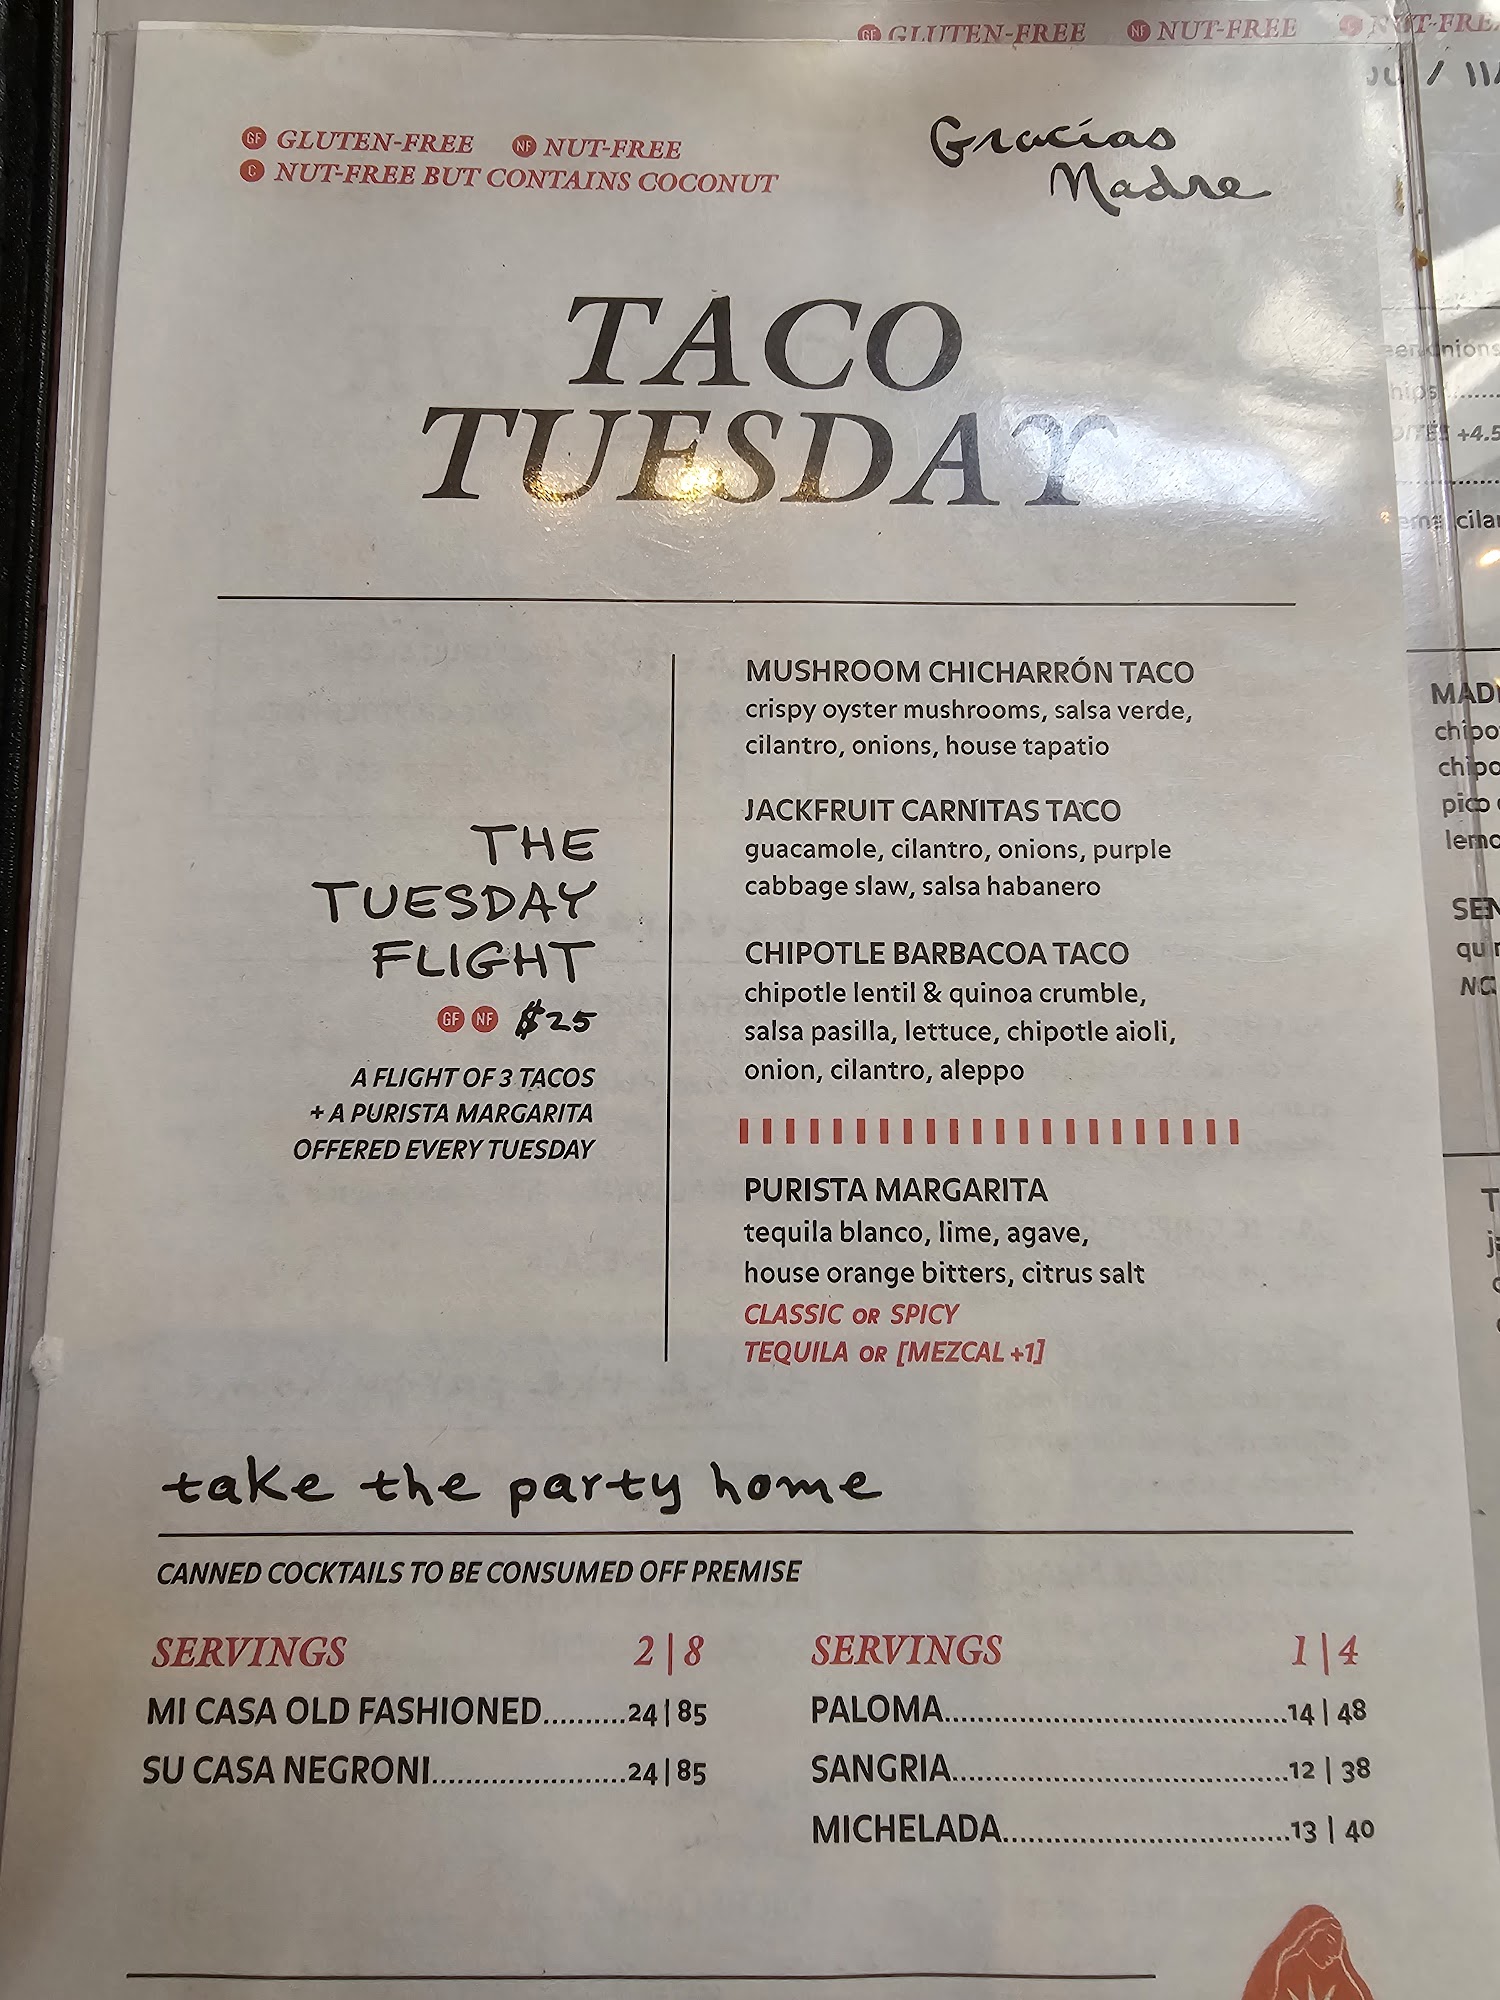 GF GLUTEN-FREE NF NUT-FREE
GF GLUTEN-FREE NF NUT-FREE
C NUT-FREE BUT CONTAINS COCONUT
Gracias
Madre
TACO
TUESDAY
THE
TUESDAY
FLIGHT
GF NF $25
A FLIGHT OF 3 TACOS
+ A PURISTA MARGARITA
OFFERED EVERY TUESDAY
MUSHROOM CHICHARRÓN TACO
crispy oyster mushrooms, salsa verde,
cilantro, onions, house tapatio
JACKFRUIT CARNITAS TACO
guacamole, cilantro, onions, purple
cabbage slaw, salsa habanero
CHIPOTLE BARBACOA TACO
chipotle lentil & quinoa crumble,
salsa pasilla, lettuce, chipotle aioli,
onion, cilantro, aleppo
PURISTA MARGARITA
tequila blanco, lime, agave,
house orange bitters, citrus salt
CLASSIC OR SPICY
TEQUILA OR [MEZCAL +1]
take the party home
CANNED COCKTAILS TO BE CONSUMED OFF PREMISE
SERVINGS 2 | 8
MI CASA OLD FASHIONED..........24|85
SU CASA NEGRONI......................24|85
SERVINGS 1 | 4
PALOMA.......................................14 | 48
SANGRIA......................................12 | 38
MICHELADA................................13 | 40
+4.5